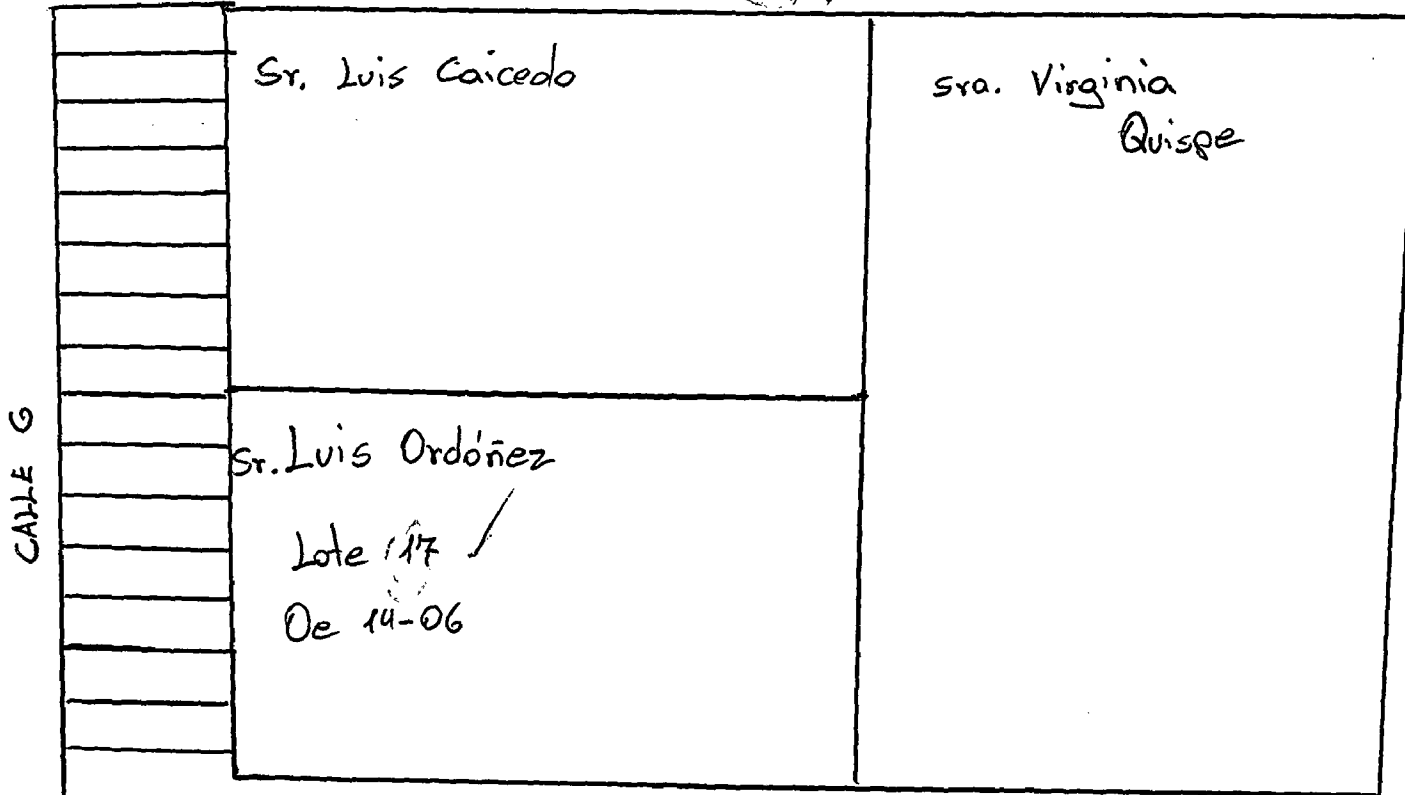 Sr. Luis Caicedo
sra. Virginia
Quispe
CALLE G
Sr. Luis Ordóñez
Lote 17
Oe 14-06